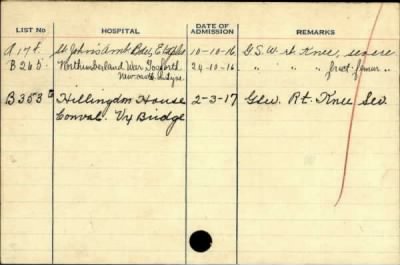 LIST No HOSPITAL DATE OF ADMISSION REMARKS
A 17 t. St John's Amb Bde, Etaples 10-10-16 G.S.W. rt. Knee, severe
B 265. Northumberland War Gosforth 24-10-16. " " " fract. femur "
Newcastle
B353 Hillingdon House 2-3-17 Gsw. Rt. Knee Sev.
Conval. Ux Bridge